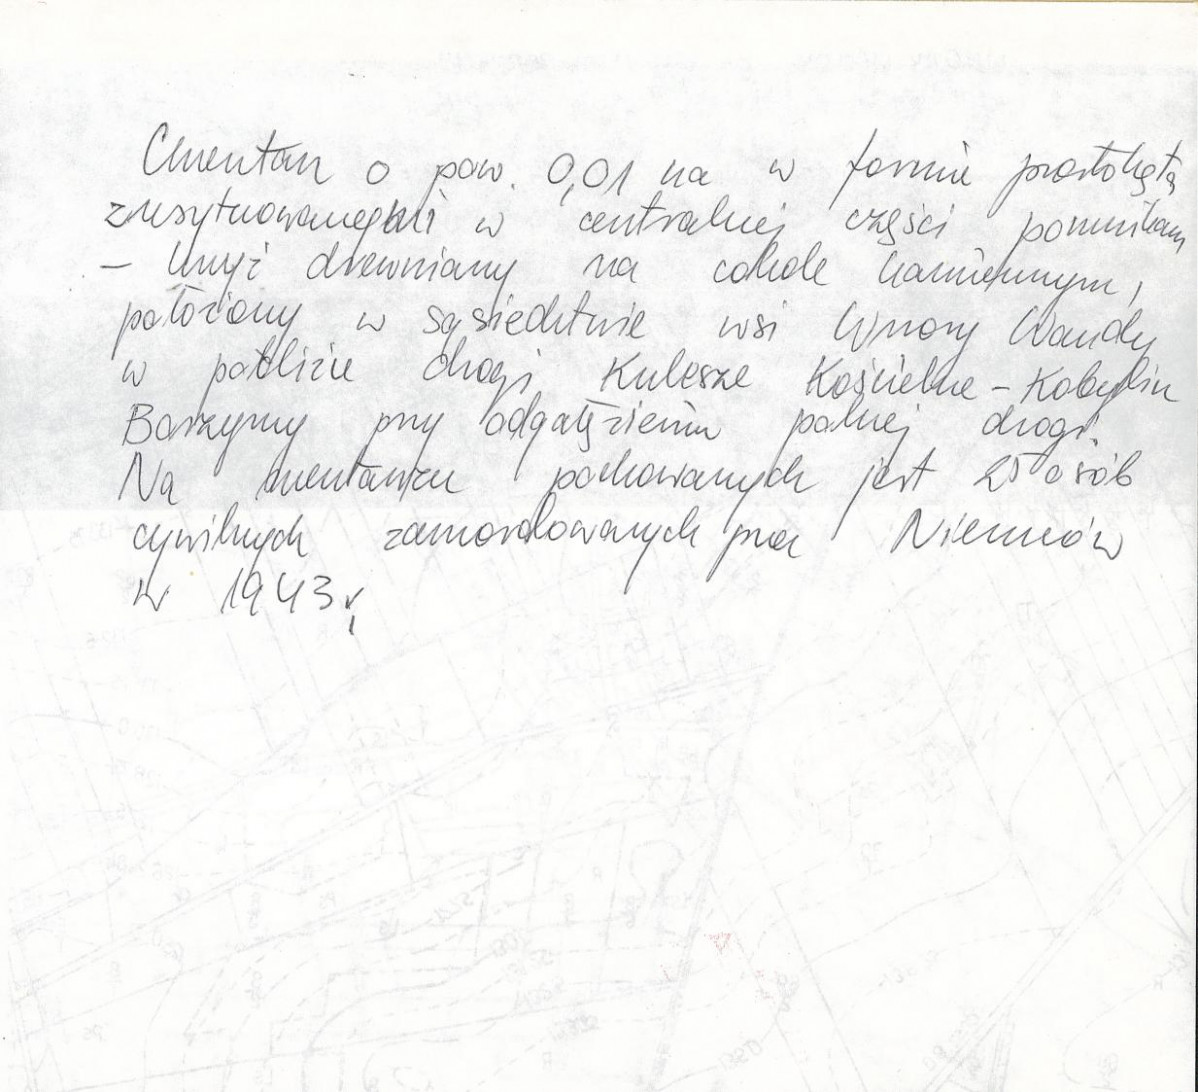 Cmentarz o pow. 0,01 ha w formie prostokąta
z usytuowanym w centralnej części pomnikiem
– krzyż drewniany na cokole kamiennym,
położony w sąsiedztwie wsi Wnory Wandy
w pobliżu drogi Kulesze Kościelne – Kobylin
Borzymy przy odgałęzieniu polnej drogi.
Na cmentarzu pochowanych jest 25 osób
cywilnych zamordowanych przez Niemców
w 1943 r.